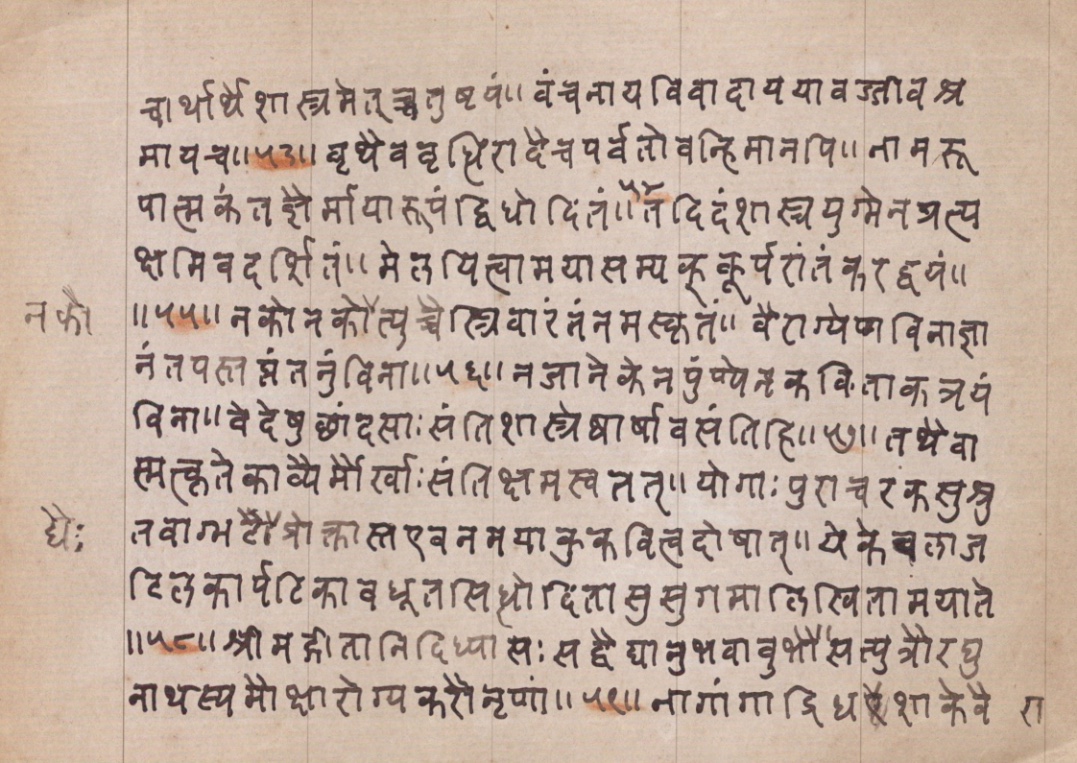 चार्थार्थशास्त्रमेतच्चतुष्टयं॥ वंचनाय विवादाय यावज्जीवश्र
मायच॥५३॥ वृथैववृधिरादैचपर्वतोवन्हिमानपि॥ नामरू
पात्मकंतज्ञैर्मायारूपंद्विधोदितं॥५४ तदिदंशास्त्रयुग्मेनप्रत्य
क्षमिवदर्शितं॥ मेलयित्वामयासम्यक्कूर्परांतंकरद्वयं॥
नको ॥५५॥ नकोनकोत्युच्चैस्त्रिवारंतंनमस्कृतं॥ वैराग्येणविनाज्ञा
नंतपस्तप्तंतनुंविना॥५६॥ नजानेकेनपुंण्येनकविताकत्रयं
विना॥ वेदेषुछांदसाःसंतिशास्त्रेष्वार्षावसंतिहि॥५७॥ तथैवा
स्मत्कृतेकाव्यैर्मौर्खाःसंतिक्षमस्वतत्॥ योगाःपुराचरकसुश्रु
द्यैः तवाग्भटौप्रोक्तास्तएवनमयाकुकवित्वदोषात्॥ येकेचलाज
टिलकार्पटिकावधूतसिधोदितासुसुगमालिखितामयाते
॥५८॥ श्रीमद्गीतानिदिध्यासःसद्वैद्यानुभवावुभौसत्पुत्रौरघु
नाथस्यमोक्षारोग्यकरौनृणां॥५९॥ नागांगाद्रिधराशाकेवै रा